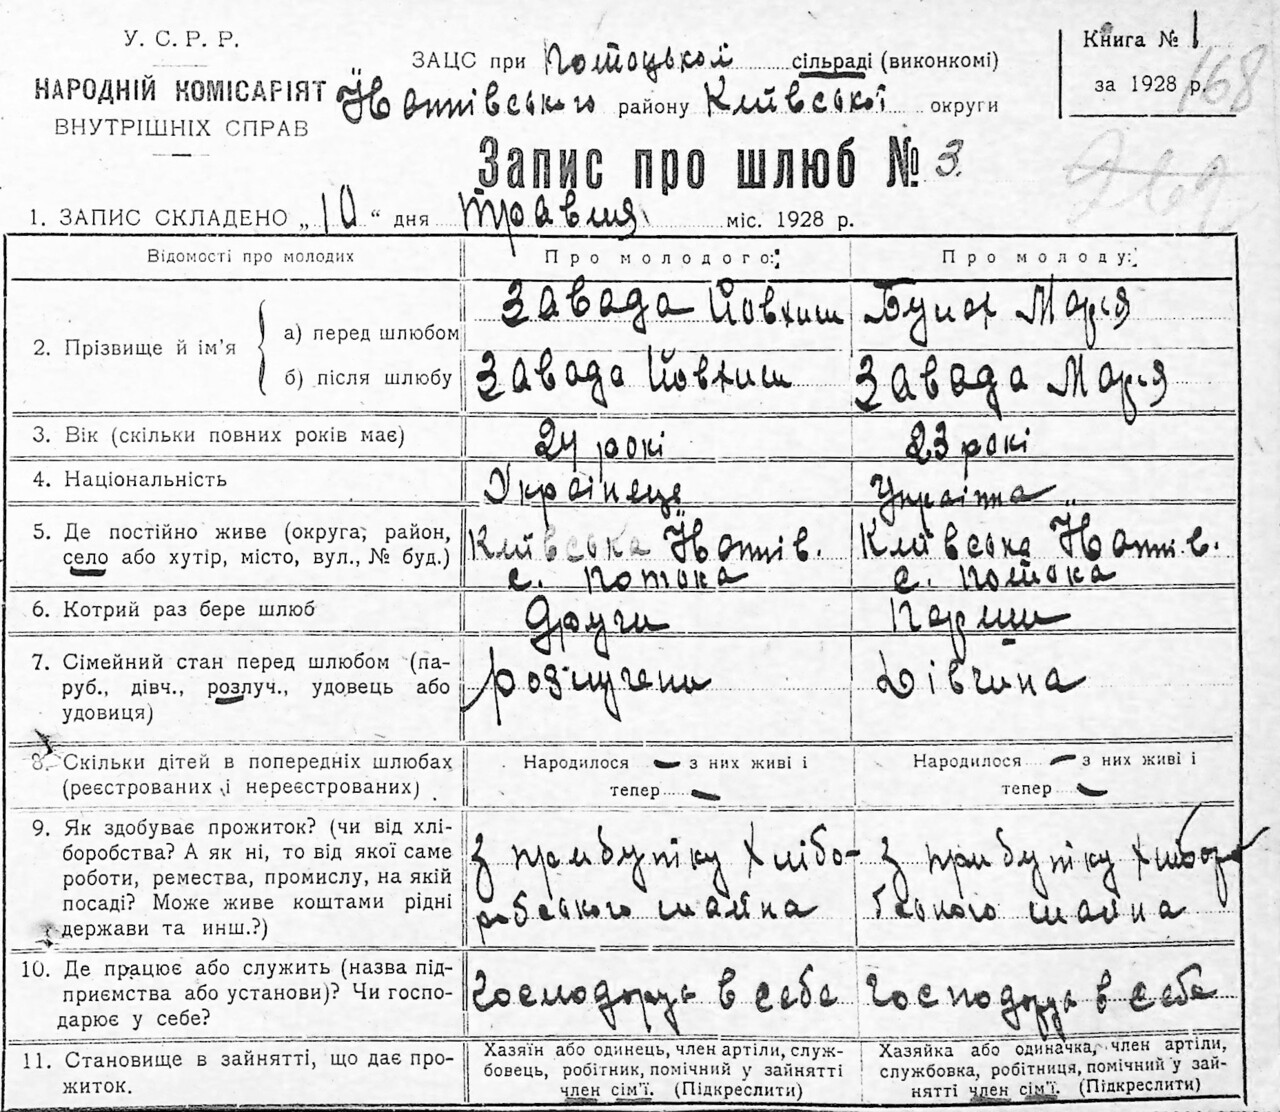 У. С. Р. Р.
НАРОДНІЙ КОМІСАРІЯТ
ВНУТРІШНІХ СПРАВ
ЗАЦС при Потоцькой сільраді (виконкомі)
району Київської округи
Книга № 1
за 1928 р.
168
Запис про шлюб № 3.
1. ЗАПИС СКЛАДЕНО „10“ дня травня міс. 1928 р.
Відомості про молодих
Про молодого:
Про молоду:
2. Прізвище й ім’я
а) перед шлюбом
Завада Йовхим
Марія
б) після шлюбу
Завада Йовхим
Завада Марія
3. Вік (скільки повних років має)
24 рокі
23 рокі
4. Національність
Українець
Українка
5. Де постійно живе (округа, район,
село або хутір, місто, вул., № буд.)
Київська
с. Потока
Київська
с. Потока
6. Котрий раз бере шлюб
други
Перши
7. Сімейний стан перед шлюбом (па-
руб., дівч., розлуч., удовець або
удовиця)
розлучени
Дівчина
8. Скільки дітей в попередніх шлюбах
(реєстрованих і нереєстрованих)
Народилося — з них живі і
тепер —
Народилося — з них живі і
тепер —
9. Як здобуває прожиток? (чи від хлі-
боробства? А як ні, то від якої саме
роботи, ремества, промислу, на якій
посаді? Може живе коштами рідні
держави та инш.?)
з прибутіку Хлібо-
робського
з прибутіку Хлібор
бського
10. Де працює або служить (назва під-
приємства або установи)? Чи госпо-
дарює у себе?
Господорує в себе
Господорує в себе
11. Становище в зайнятті, що дає про-
житок.
Хазяїн або одинець, член артілі, служ-
бовець, робітник, помічний у зайнятті
член сім’ї. (Підкреслити)
Хазяйка або одиначка, член артілі,
службовка, робітниця, помічний у зай-
нятті член сім’ї. (Підкреслити)